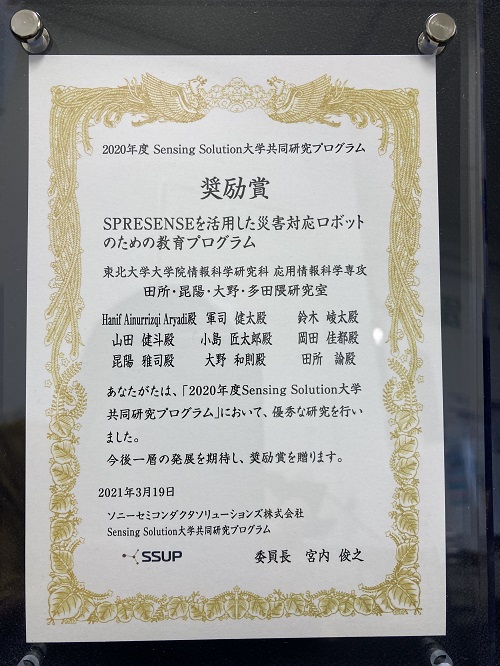 2020年度 Sensing Solution大学共同研究プログラム
奨励賞
SPRESENSEを活用した災害対応ロボット
のための教育プログラム
東北大学大学院情報科学研究科 応用情報科学専攻
田所・昆陽・大野・多田隈研究室
Hanif Ainurrizqi Aryadi殿 軍司 健太殿 鈴木 崚太殿
山田 健斗殿 小島 匠太郎殿 岡田 佳都殿
昆陽 雅司殿 大野 和則殿 田所 諭殿
あなたがたは、「2020年度Sensing Solution大学
共同研究プログラム」において、優秀な研究を行い
ました。
今後一層の発展を期待し、奨励賞を贈ります。
2021年3月19日
ソニーセミコンダクタソリューションズ株式会社
Sensing Solution大学共同研究プログラム
SSUP 委員長 宮内 俊之